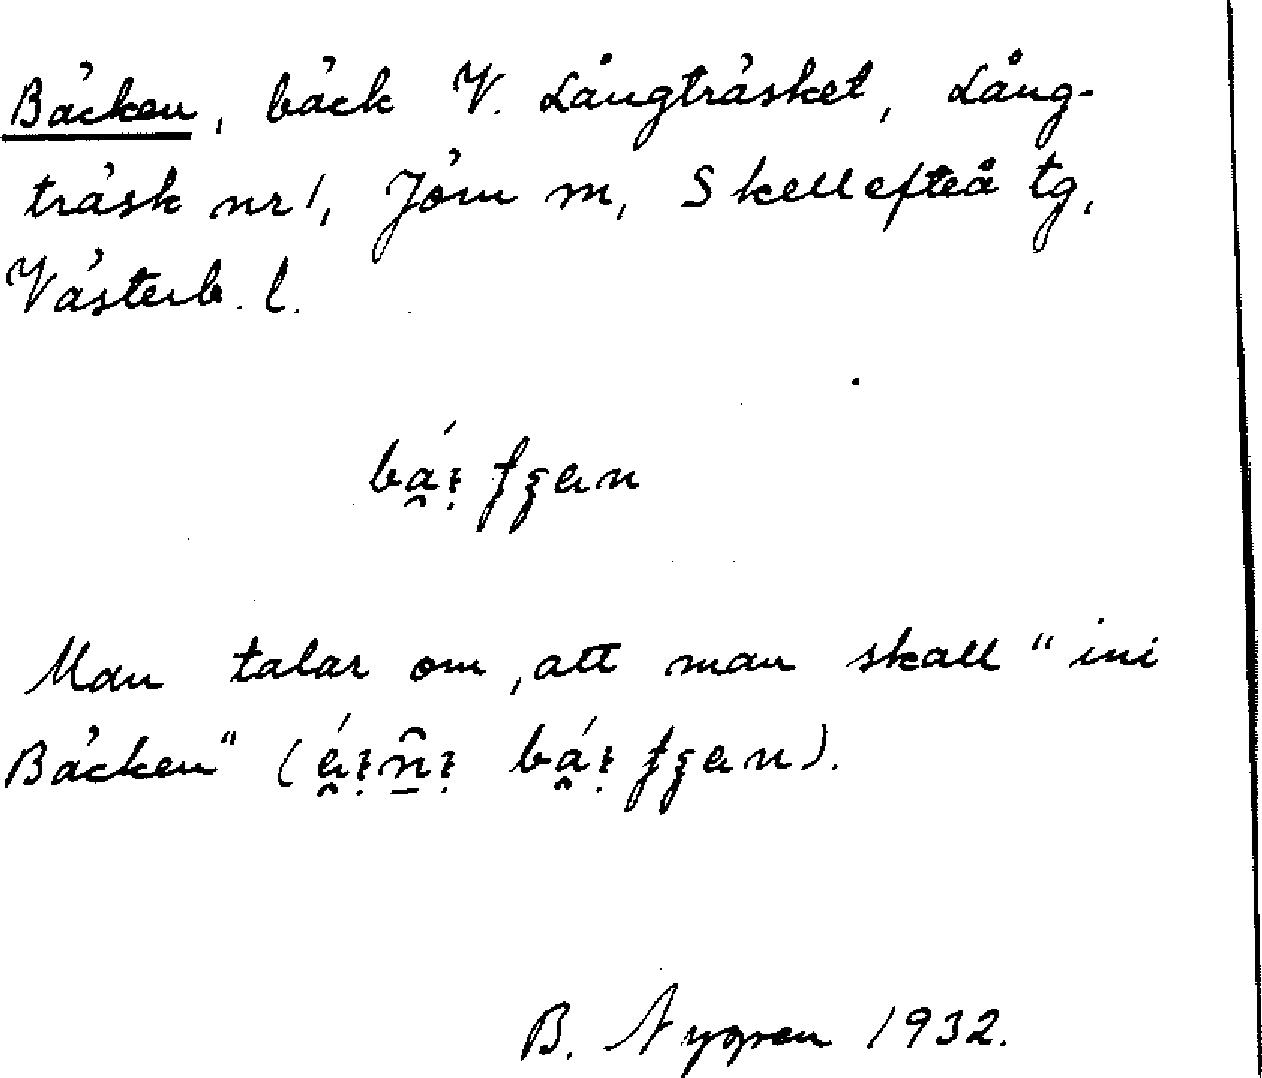 Bäcken, bäck V. Långträsket, Lång-
träsk nr 1, Jörn m, Skellefteå tg,
Västerb. l.
Man talar om, att man skall "ini
Bäcken"
B. Nygren 1932.